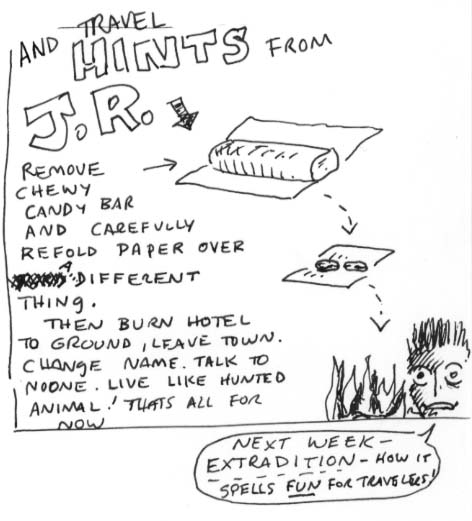 TRAVEL
AND HINTS FROM
J.R.
REMOVE
CHEWY
CANDY BAR
AND CAREFULLY
REFOLD PAPER OVER
A DIFFERENT
THING.
THEN BURN HOTEL
TO GROUND, LEAVE TOWN.
CHANGE NAME. TALK TO
NOONE. LIVE LIKE HUNTED
ANIMAL! THATS ALL FOR
NOW
NEXT WEEK-
EXTRADITION - HOW IT
SPELLS FUN FOR TRAVELERS!